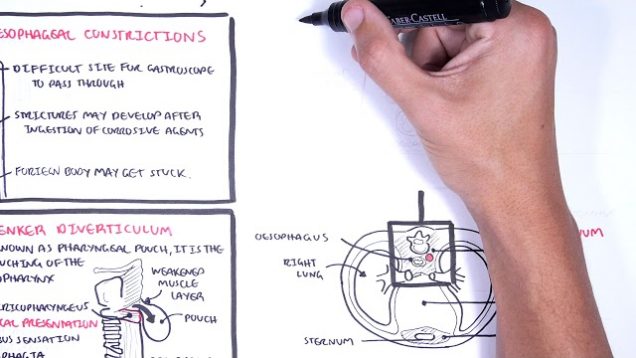 ESOPHAGEAL CONSTRICTIONS
DIFFICULT SITE FOR GASTROSCOPE
TO PASS THROUGH
STRICTURES MAY DEVELOP AFTER
INGESTION OF CORROSIVE AGENTS
FORIEGN BODY MAY GET STUCK.
ENKER DIVERTICULUM
KNOWN AS PHARYNGEAL POUCH, IT IS THE
UCHING OF THE
OPHARYNX
WEAKENED
MUSCLE
LAYER
RICOPHARYNGEUS
POUCH
CAL PRESENTATION
BUS SENSATION
PHAGIA
FABER-CASTELL
OESOPHAGUS
RIGHT
LUNG
STERNUM
UM